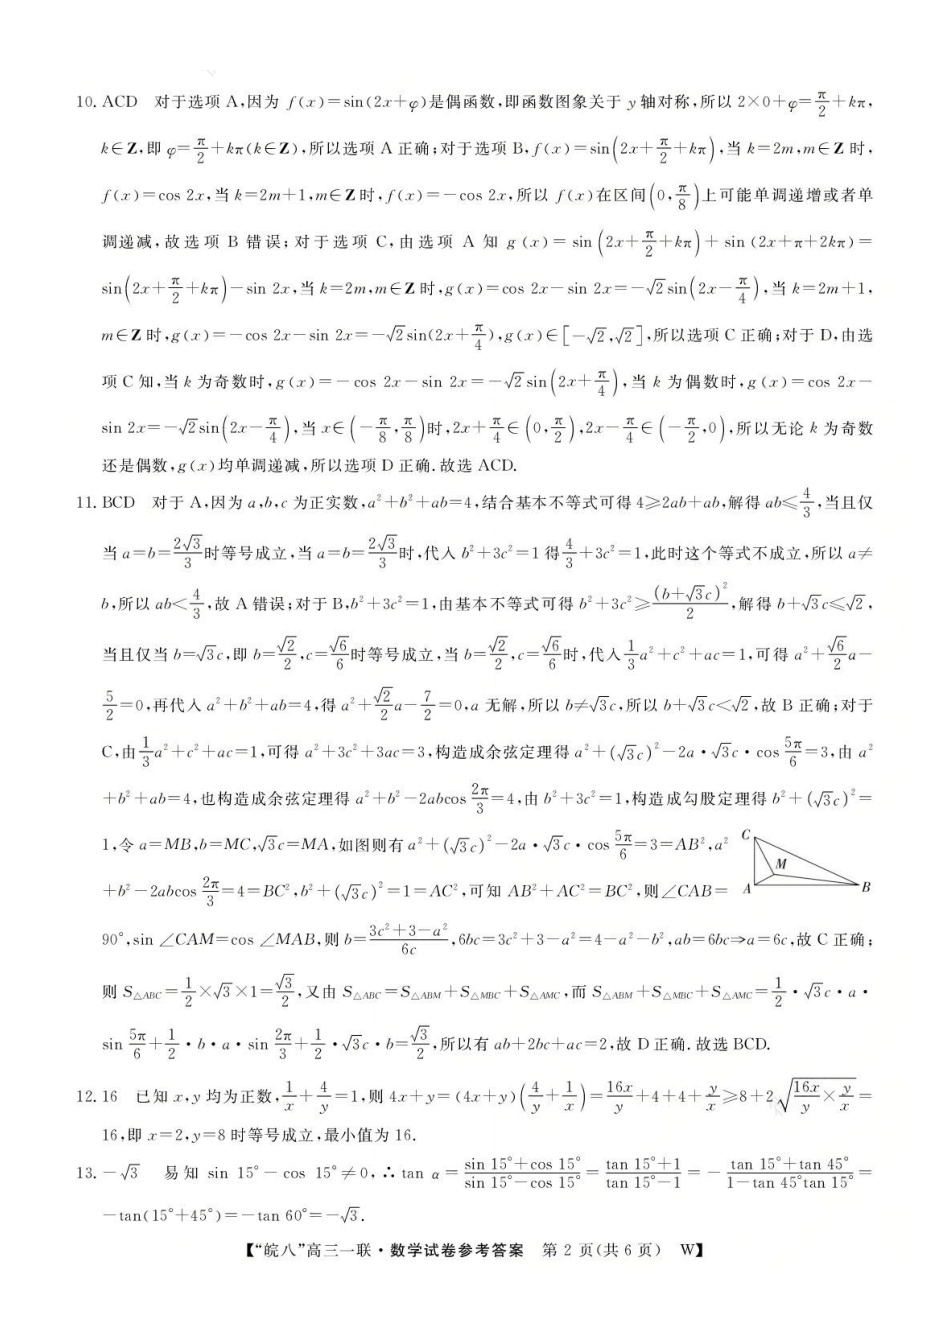 10. ACD 对于选项 A,因为 f(x)=sin(2x+φ)是偶函数,即函数图象关于 y 轴对称,所以 2×0+φ=π/2+kπ,
k∈Z,即 φ=π/2+kπ(k∈Z),所以选项 A 正确;对于选项 B,f(x)=sin(2x+π/2+kπ),当 k=2m,m∈Z 时,
f(x)=cos 2x,当 k=2m+1,m∈Z 时,f(x)=-cos 2x,所以 f(x)在区间(0,π/8)上可能单调递增或者单
调递减,故选项 B 错误;对于选项 C,由选项 A 知 g(x)=sin(2x+π/2+kπ)+sin(2x+π+2kπ)=
sin(2x+π/2+kπ)-sin 2x,当 k=2m,m∈Z 时,g(x)=cos 2x-sin 2x=-√2sin(2x-π/4),当 k=2m+1,
m∈Z 时,g(x)=-cos 2x-sin 2x=-√2sin(2x+π/4),g(x)∈[-√2,√2],所以选项 C 正确;对于 D,由选
项 C 知,当 k 为奇数时,g(x)=-cos 2x-sin 2x=-√2sin(2x+π/4),当 k 为偶数时,g(x)=cos 2x-
sin 2x=-√2sin(2x-π/4),当 x∈(-π/8,π/8)时,2x+π/4∈(0,π/2),2x-π/4∈(-π/2,0),所以无论 k 为奇数
还是偶数,g(x)均单调递减,所以选项 D 正确.故选 ACD.
11. BCD 对于 A,因为 a,b,c 为正实数,a²+b²+ab=4,结合基本不等式可得 4≥2ab+ab,解得 ab≤4/3,当且仅
当 a=b=2√3/3时等号成立,当 a=b=2√3/3时,代入 b²+3c²=1 得4/3+3c²=1,此时这个等式不成立,所以 a≠
b,所以 ab<4/3,故 A 错误;对于 B,b²+3c²=1,由基本不等式可得 b²+3c²≥(b+√3c)²/2,解得 b+√3c≤√2,
当且仅当 b=√3c,即 b=√2/2,c=√6/6时等号成立,当 b=√2/2,c=√6/6时,代入1/3a²+c²+ac=1,可得 a²+√6/2a-
5/2=0,再代入 a²+b²+ab=4,得 a²+√2/2a-7/2=0,a 无解,所以 b≠√3c,所以 b+√3c<√2,故 B 正确;对于
C,由1/3a²+c²+ac=1,可得 a²+3c²+3ac=3,构造成余弦定理得 a²+(√3c)²-2a·√3c·cos 5π/6=3,由 a²
+b²+ab=4,也构造成余弦定理得 a²+b²-2abcos 2π/3=4,由 b²+3c²=1,构造成勾股定理得 b²+(√3c)²=
1,令 a=MB,b=MC,√3c=MA,如图则有 a²+(√3c)²-2a·√3c·cos 5π/6=3=AB²,a²
+b²-2abcos 2π/3=4=BC²,b²+(√3c)²=1=AC²,可知 AB²+AC²=BC²,则∠CAB=
C
M
A
B
90°,sin ∠CAM=cos ∠MAB,则 b=(3c²+3-a²)/6c,6bc=3c²+3-a²=4-a²-b²,ab=6bc⇒a=6c,故 C 正确;
则 S△ABC=1/2×√3×1=√3/2,又由 S△ABC=S△ABM+S△MBC+S△AMC,而 S△ABM+S△MBC+S△AMC=1/2·√3c·a·
sin 5π/6+1/2·b·a·sin 2π/3+1/2·√3c·b=√3/2,所以有 ab+2bc+ac=2,故 D 正确.故选 BCD.
12. 16 已知 x,y 均为正数,1/x+4/y=1,则 4x+y=(4x+y)(4/y+1/x)=16x/y+4+4+y/x≥8+2√(16x/y×y/x)=
16,即 x=2,y=8 时等号成立,最小值为 16.
13. -√3 易知 sin 15°-cos 15°≠0,∴tan α=(sin 15°+cos 15°)/(sin 15°-cos 15°)=(tan 15°+1)/(tan 15°-1)=-(tan 15°+tan 45°)/(1-tan 45°tan 15°)=
-tan(15°+45°)=-tan 60°=-√3.
【“皖八”高三一联·数学试卷参考答案 第 2 页(共 6 页) W】